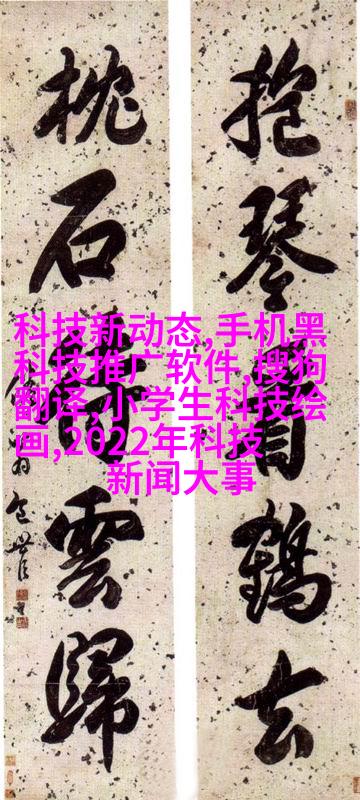 抱琴看鶴去
枕石待雲歸
包世臣
科技新动态,手机黑
科技推广软件,搜狗
翻译,小学生科技绘
画,2022年科技
新闻大事